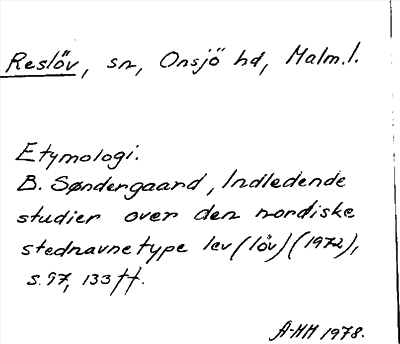 Reslöv, sn, Onsjö hd, Malm.l.
Etymologi.
B. Søndergaard, Indledende
studier over den nordiske
stednavnetype lev (löv) (1972),
s. 97, 133 ff.
A-MH 1978.